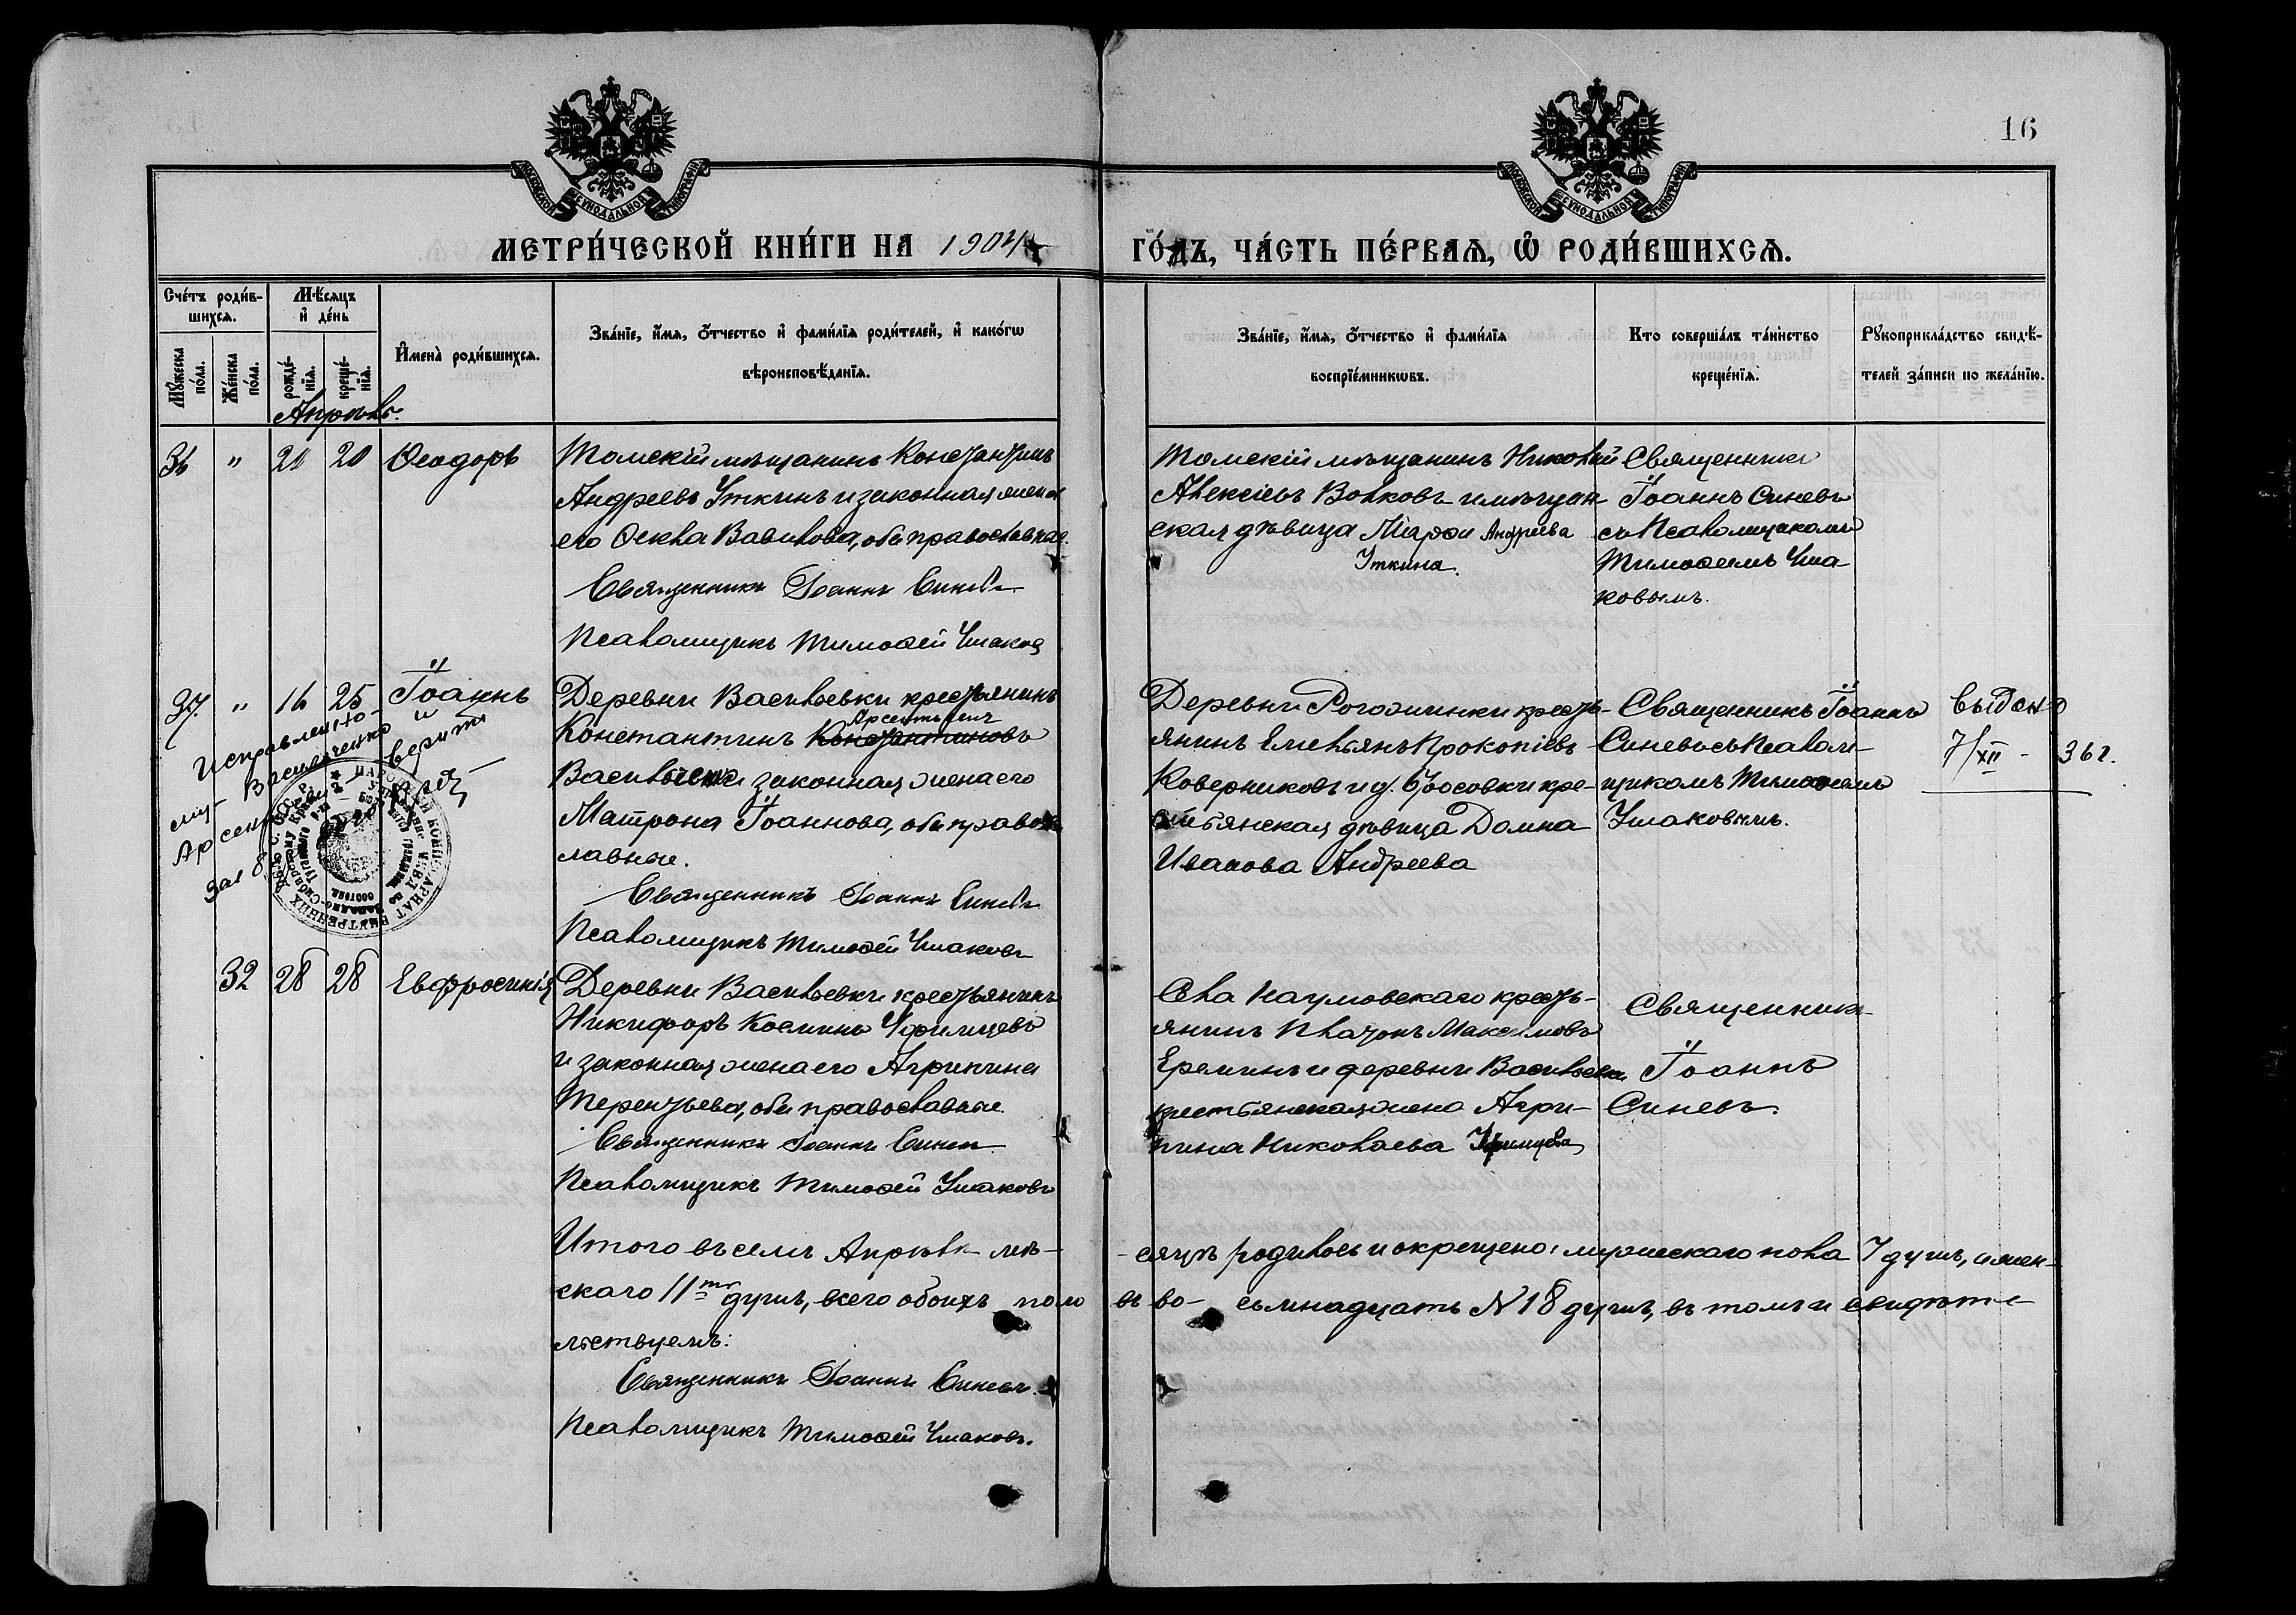 16
МЕТРИ́ЧЕСКОЙ КНИ́ГИ НА 1904
ГО́ДЪ, ЧА́СТЬ ПЕ́РВАѦ, Ѡ РОДИ́ВШИХСѦ.
Сче́тъ роди́в-
шихсѧ.
Мꙋ́жеска
по́ла.
Же́нска
по́ла.
Мѣ́сѧцъ
и҆ де́нь
рожде́-
нїѧ.
креще́-
нїѧ.
И҆мена̀ роди́вшихсѧ.
Зва́нїе, и҆́мѧ, ѻ҆́тчество и҆ фами́лїѧ роди́телей, и҆ како́гѡ
вѣроисповѣ́данїѧ.
Зва́нїе, и҆́мѧ, ѻ҆́тчество и҆ фами́лїѧ
воспрїе́мникѡвъ.
Кто соверша́лъ та́инство
креще́нїѧ.
Рꙋкоприкла́дство свидѣ́-
телей за́писи по жела́нїю.
Апрѣль.
36 " 20 20 Ѳеодоръ
Томскій мѣщанинъ Константинъ
Андреевъ Уткинъ и законная жена
его Ѳекла Вавилова, оба православные.
Священникъ Іоаннъ Синевъ
Псаломщикъ Тимоѳей Ушаковъ
Томскій мѣщанинъ Николай
Алексіевъ Волковъ и мѣщан-
ская дѣвица Марѳа Андреева
Уткина.
Священникъ
Іоаннъ Синевъ
съ Псаломщикомъ
Тимоѳеемъ Уша-
ковымъ.
37. " 16 25 Іоаннъ
Исправленно-
му Василенко и
Арсентьев верить
Зав
Деревни Васильевки крестьянинъ
Арсентьевъ
Константинъ Константиновъ
Васильенко и законная жена его
Матрона Іоаннова, оба правос-
лавные.
Священникъ Іоаннъ Синевъ
Псаломщикъ Тимоѳей Ушаковъ
Деревни Рогожинки кресть-
янинъ Емельянъ Прокопіевъ
Коверниковъ и д. Бросовки кре-
стьянская дѣвица Домна
Иванова Андреева
Священникъ Іоаннъ
Синевъ съ Псалом-
щикомъ Тимоѳеемъ
Ушаковымъ.
Выдано
7/XII - 36 г.
32 28 28 Евфросинія
Деревни Васильевки крестьянинъ
Никифоръ Косминъ Уфимцевъ
и законная жена его Агрипина
Терентьева, оба православные.
Священникъ Іоаннъ Синевъ
Псаломщикъ Тимоѳей Ушаковъ
Села Наумовскаго кресть-
янинъ Платонъ Максимовъ
Ереминъ и деревни Васильевки
крестьянская жена Агри-
пина Николаева Уфимцева
Священникъ
Іоаннъ
Синевъ.
Итого въ семъ Апрѣлѣ мѣ-
-сяцѣ родилось и окрещено: мужескаго пола 7 душъ, жен-
скаго 11ть душъ, всего обоихъ поло
въ во- семнадцать N 18 душъ, въ томъ и свидѣте-
льствуемъ:
Священникъ Іоаннъ Синевъ.
Псаломщикъ Тимоѳей Ушаковъ.